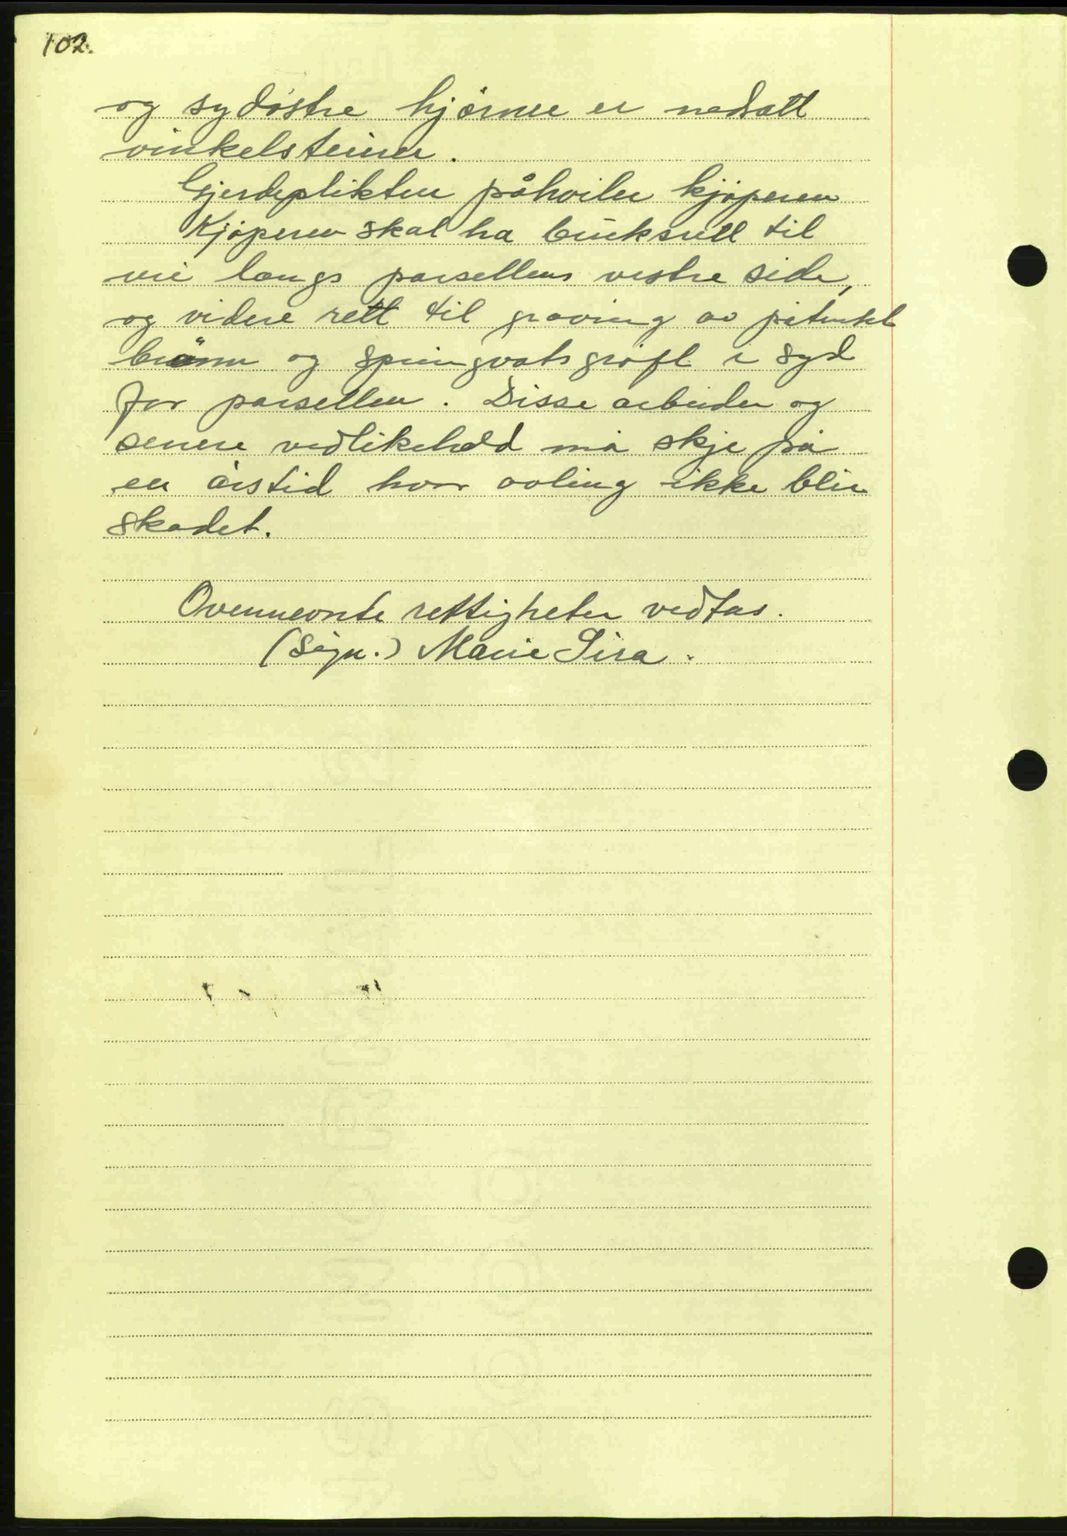 102.
og sydöstre hjörne er nedsatt
vinkelsteiner.
Gjerdeplikten påhviler kjöperen
Kjöperen skal ha bruksrett til
vei langs parsellens vestre side,
og videre rett til graving av
brönn og springvatsgröft i syd
for parsellen. Disse arbeider og
senere vedlikehold må skje på
en årstid hvor avling ikke blir
skadet.
Ovennevnte rettigheter vedtas.
(Sign.) Marie Sira.